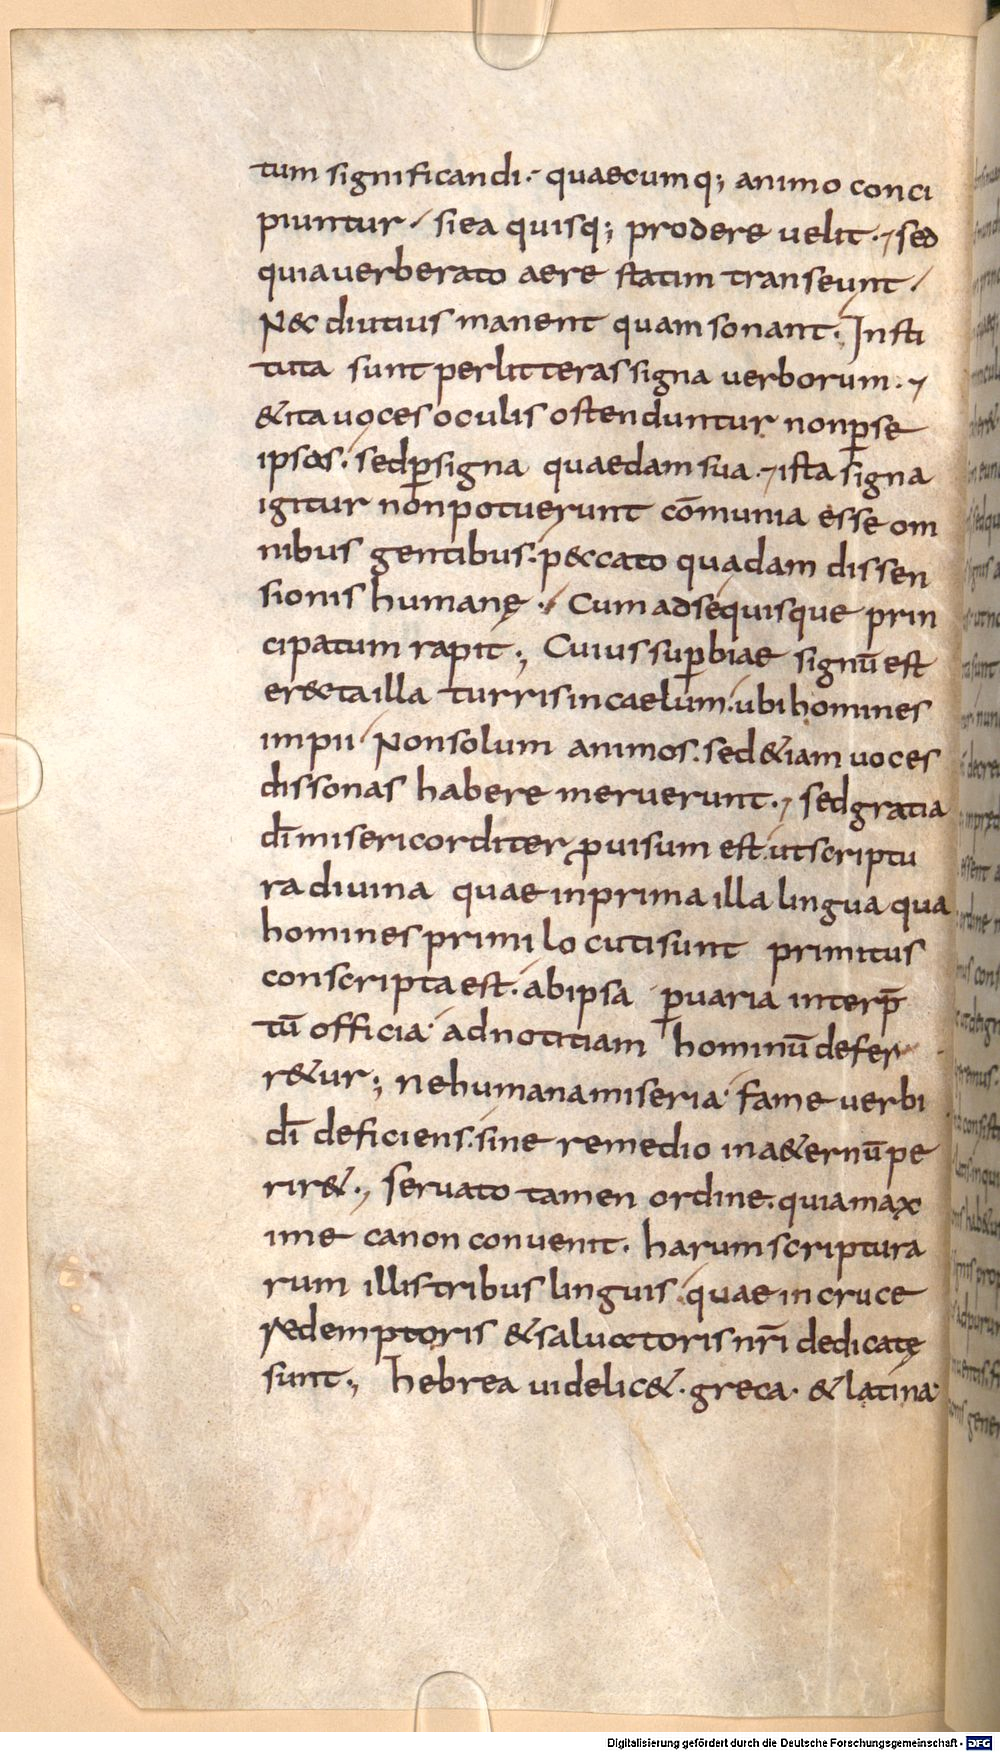 tum significandi. quaecumq; animo conci
piuntur / siea quisq; prodere uelit. sed
quia uerberato aere statim transeunt.
Nec diutius manent quam sonant. Insti
tuta sunt per litteras signa uerborum.
&ita uoces oculis ostenduntur non p̱se
ipsas. sed p̱ signa quaedam sua. ista signa
igitur non potuerunt cōmunia esse om
nibus gentibus. peccato quadam dissen
sionis humanę. Cum ad se quisque prin
cipatum rapit; Cuius sup̱biae signū est
er&cta illa turris in caelum. ubi homines
impii Non solum animos. sed &iam uoces
dissonas habere meruerunt. sed gratia
dī misericorditer ꝓuisum est. ut scriptu
ra diuina quae in prima illa lingua qua
homines primi locuti sunt primitus
conscripta est. ab ipsa p̱ uaria interp̄
tū officia ad notitiam hominū defer
r&ur; ne humana miseria fame uerbi
dī deficiens. sine remedio in a&ernū pe
rir&., seruato tamen ordine. quia max
ime canon conuenit. harum scriptura
rum illistribus linguis. quae in cruce
redemptoris &saluatoris nr̄i dedicatę
sunt; hebrea uidelic&. greca. & latina
Digitalisierung gefördert durch die Deutsche Forschungsgemeinschaft - DFG